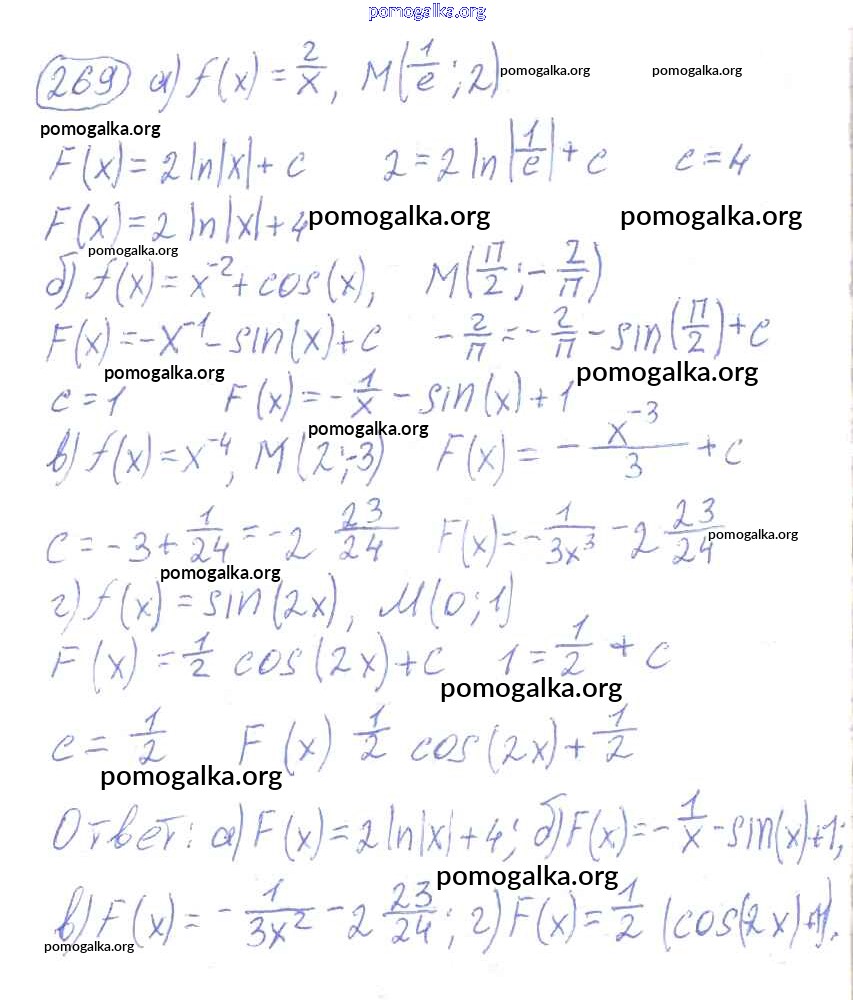 pomogalka.org
269 а) f(x) = 2/x, M(1/e ; 2) pomogalka.org pomogalka.org
pomogalka.org
F(x) = 2 ln|x| + c 2 = 2 ln|1/e| + c c = 4
F(x) = 2 ln|x| + 4 pomogalka.org pomogalka.org
pomogalka.org
б) f(x) = x^-2 + cos(x), M(П/2 ; -2/П)
F(x) = -x^-1 - sin(x) + c -2/П = -2/П - sin(П/2) + c
pomogalka.org pomogalka.org
c = 1 F(x) = -1/x - sin(x) + 1
pomogalka.org
в) f(x) = x^-4, M(2;-3) F(x) = - x^-3/3 + c
c = -3 + 1/24 = -2 23/24 F(x) = -1/3x^3 - 2 23/24 pomogalka.org
pomogalka.org
г) f(x) = sin(2x), M(0;1)
F(x) = 1/2 cos(2x) + c 1 = 1/2 + c
pomogalka.org
c = 1/2 F(x) 1/2 cos(2x) + 1/2
pomogalka.org
Ответ: а) F(x) = 2 ln|x| + 4; б) F(x) = -1/x - sin(x) + 1;
pomogalka.org
в) F(x) = -1/3x^2 - 2 23/24; г) F(x) = 1/2 (cos(2x) + 1).
pomogalka.org